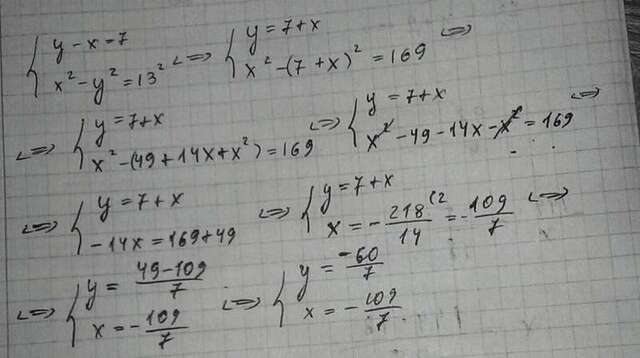 { y - x = 7 ; x² - y² = 13² <=> { y = 7 + x ; x² - (7 + x)² = 169 <=>
<=> { y = 7 + x ; x² - (49 + 14x + x²) = 169 <=> { y = 7 + x ; x² - 49 - 14x - x² = 169 <=>
<=> { y = 7 + x ; -14x = 169 + 49 <=> { y = 7 + x ; x = - 218/14 (2 = - 109/7 <=>
<=> { y = (49 - 109)/7 ; x = - 109/7 <=> { y = -60/7 ; x = - 109/7